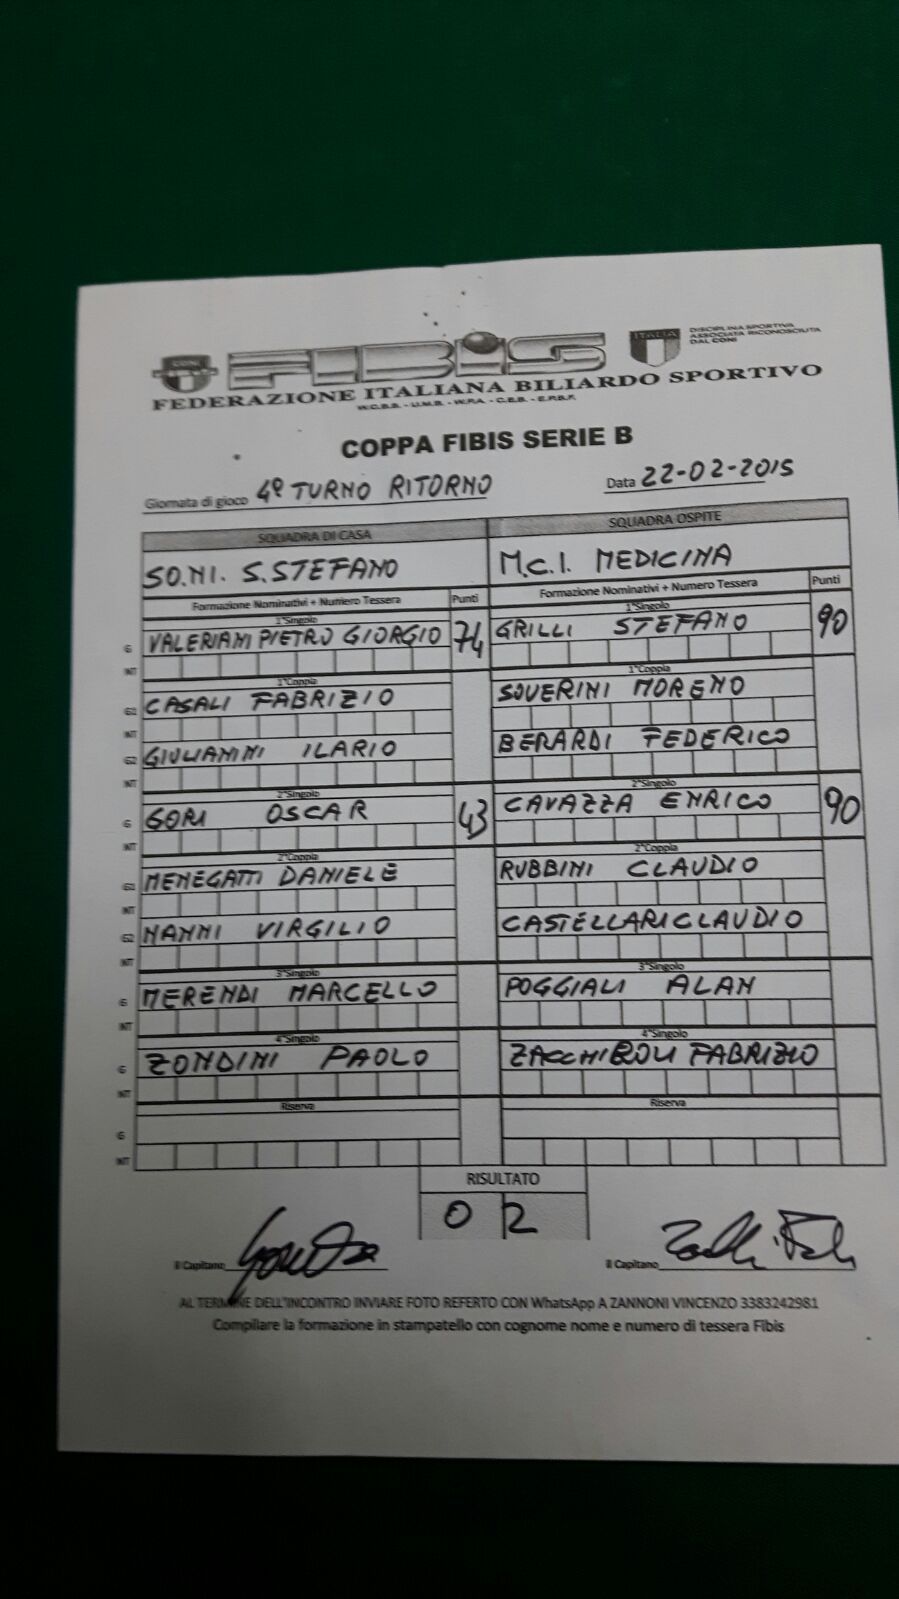 CONI
FIBiS
ITALIA
DISCIPLINA SPORTIVA
ASSOCIATA RICONOSCIUTA
DAL CONI
FEDERAZIONE ITALIANA BILIARDO SPORTIVO
W.C.B.S. - U.M.B. - W.P.A. - C.E.B. - E.P.B.F.
COPPA FIBIS SERIE B
Giornata di gioco 4º TURNO RITORNO Data 22-02-2015
SQUADRA DI CASA SQUADRA OSPITE
SO.NI. S.STEFANO M.C.I. MEDICINA
Formazione Nominativi + Numero Tessera Punti Formazione Nominativi + Numero Tessera Punti
1°Singolo 1°Singolo
G VALERIANI PIETRO GIORGIO 74 GRILLI STEFANO 90
INT
1°Coppia 1°Coppia
G1 CASALI FABRIZIO SOVERINI MORENO
INT
G2 GIULIANINI ILARIO BERARDI FEDERICO
INT
2°Singolo 2°Singolo
G GORI OSCAR 43 CAVAZZA ENRICO 90
INT
2°Coppia 2°Coppia
G1 MENEGATTI DANIELE RUBBINI CLAUDIO
INT
G2 NANNI VIRGILIO CASTELLARI CLAUDIO
INT
3°Singolo 3°Singolo
G MERENDI MARCELLO POGGIALI ALAN
INT
4°Singolo 4°Singolo
G ZONDINI PAOLO ZACCHIROLI FABRIZIO
INT
Riserva Riserva
G
INT
RISULTATO
0 2
Il Capitano Il Capitano
AL TERMINE DELL'INCONTRO INVIARE FOTO REFERTO CON WhatsApp A ZANNONI VINCENZO 3383242981
Compilare la formazione in stampatello con cognome nome e numero di tessera Fibis